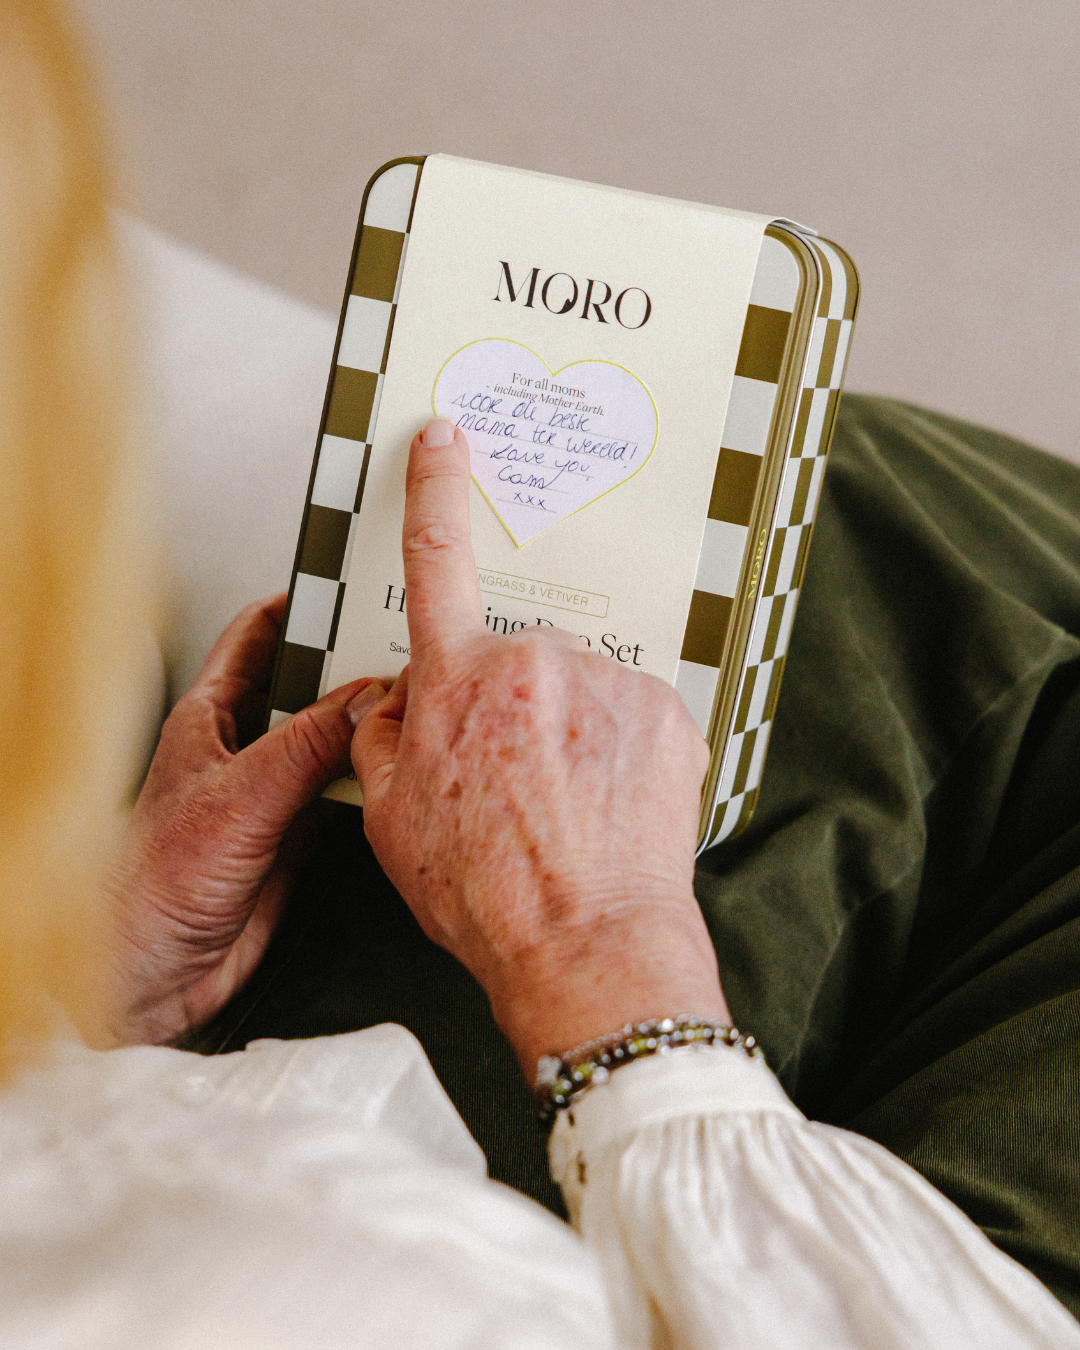 MORO
For all moms
- including Mother Earth.
voor de beste
mama ter wereld!
Love you.
Cam
xxx
& VETIVER
Set
MORO